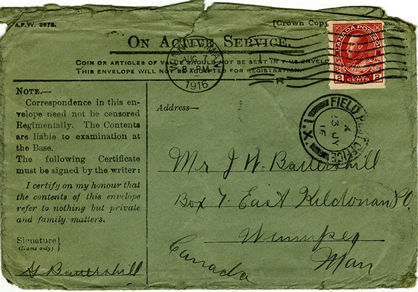 A.F.W. 3078.
[Crown Copy
ON ACTIVE SERVICE.
COIN OR ARTICLES OF VALUE SHOULD NOT BE SENT IN THIS ENVELOPE
THIS ENVELOPE WILL NOT BE REGISTRATION.
1916
CENTS
FIELD POST OFFICE
NOTE.—
Correspondence in this en-
velope need not be censored
Regimentally. The Contents
are liable to examination at
the Base.
The following Certificate
must be signed by the writer:
I certify on my honour that
the contents of this envelope
refer to nothing but private
and family matters.
Signature }
(Name only)
Battershill
Address—
Mr J W Battershill
Box 7 East Kildonan
Winnipeg
Man
Canada